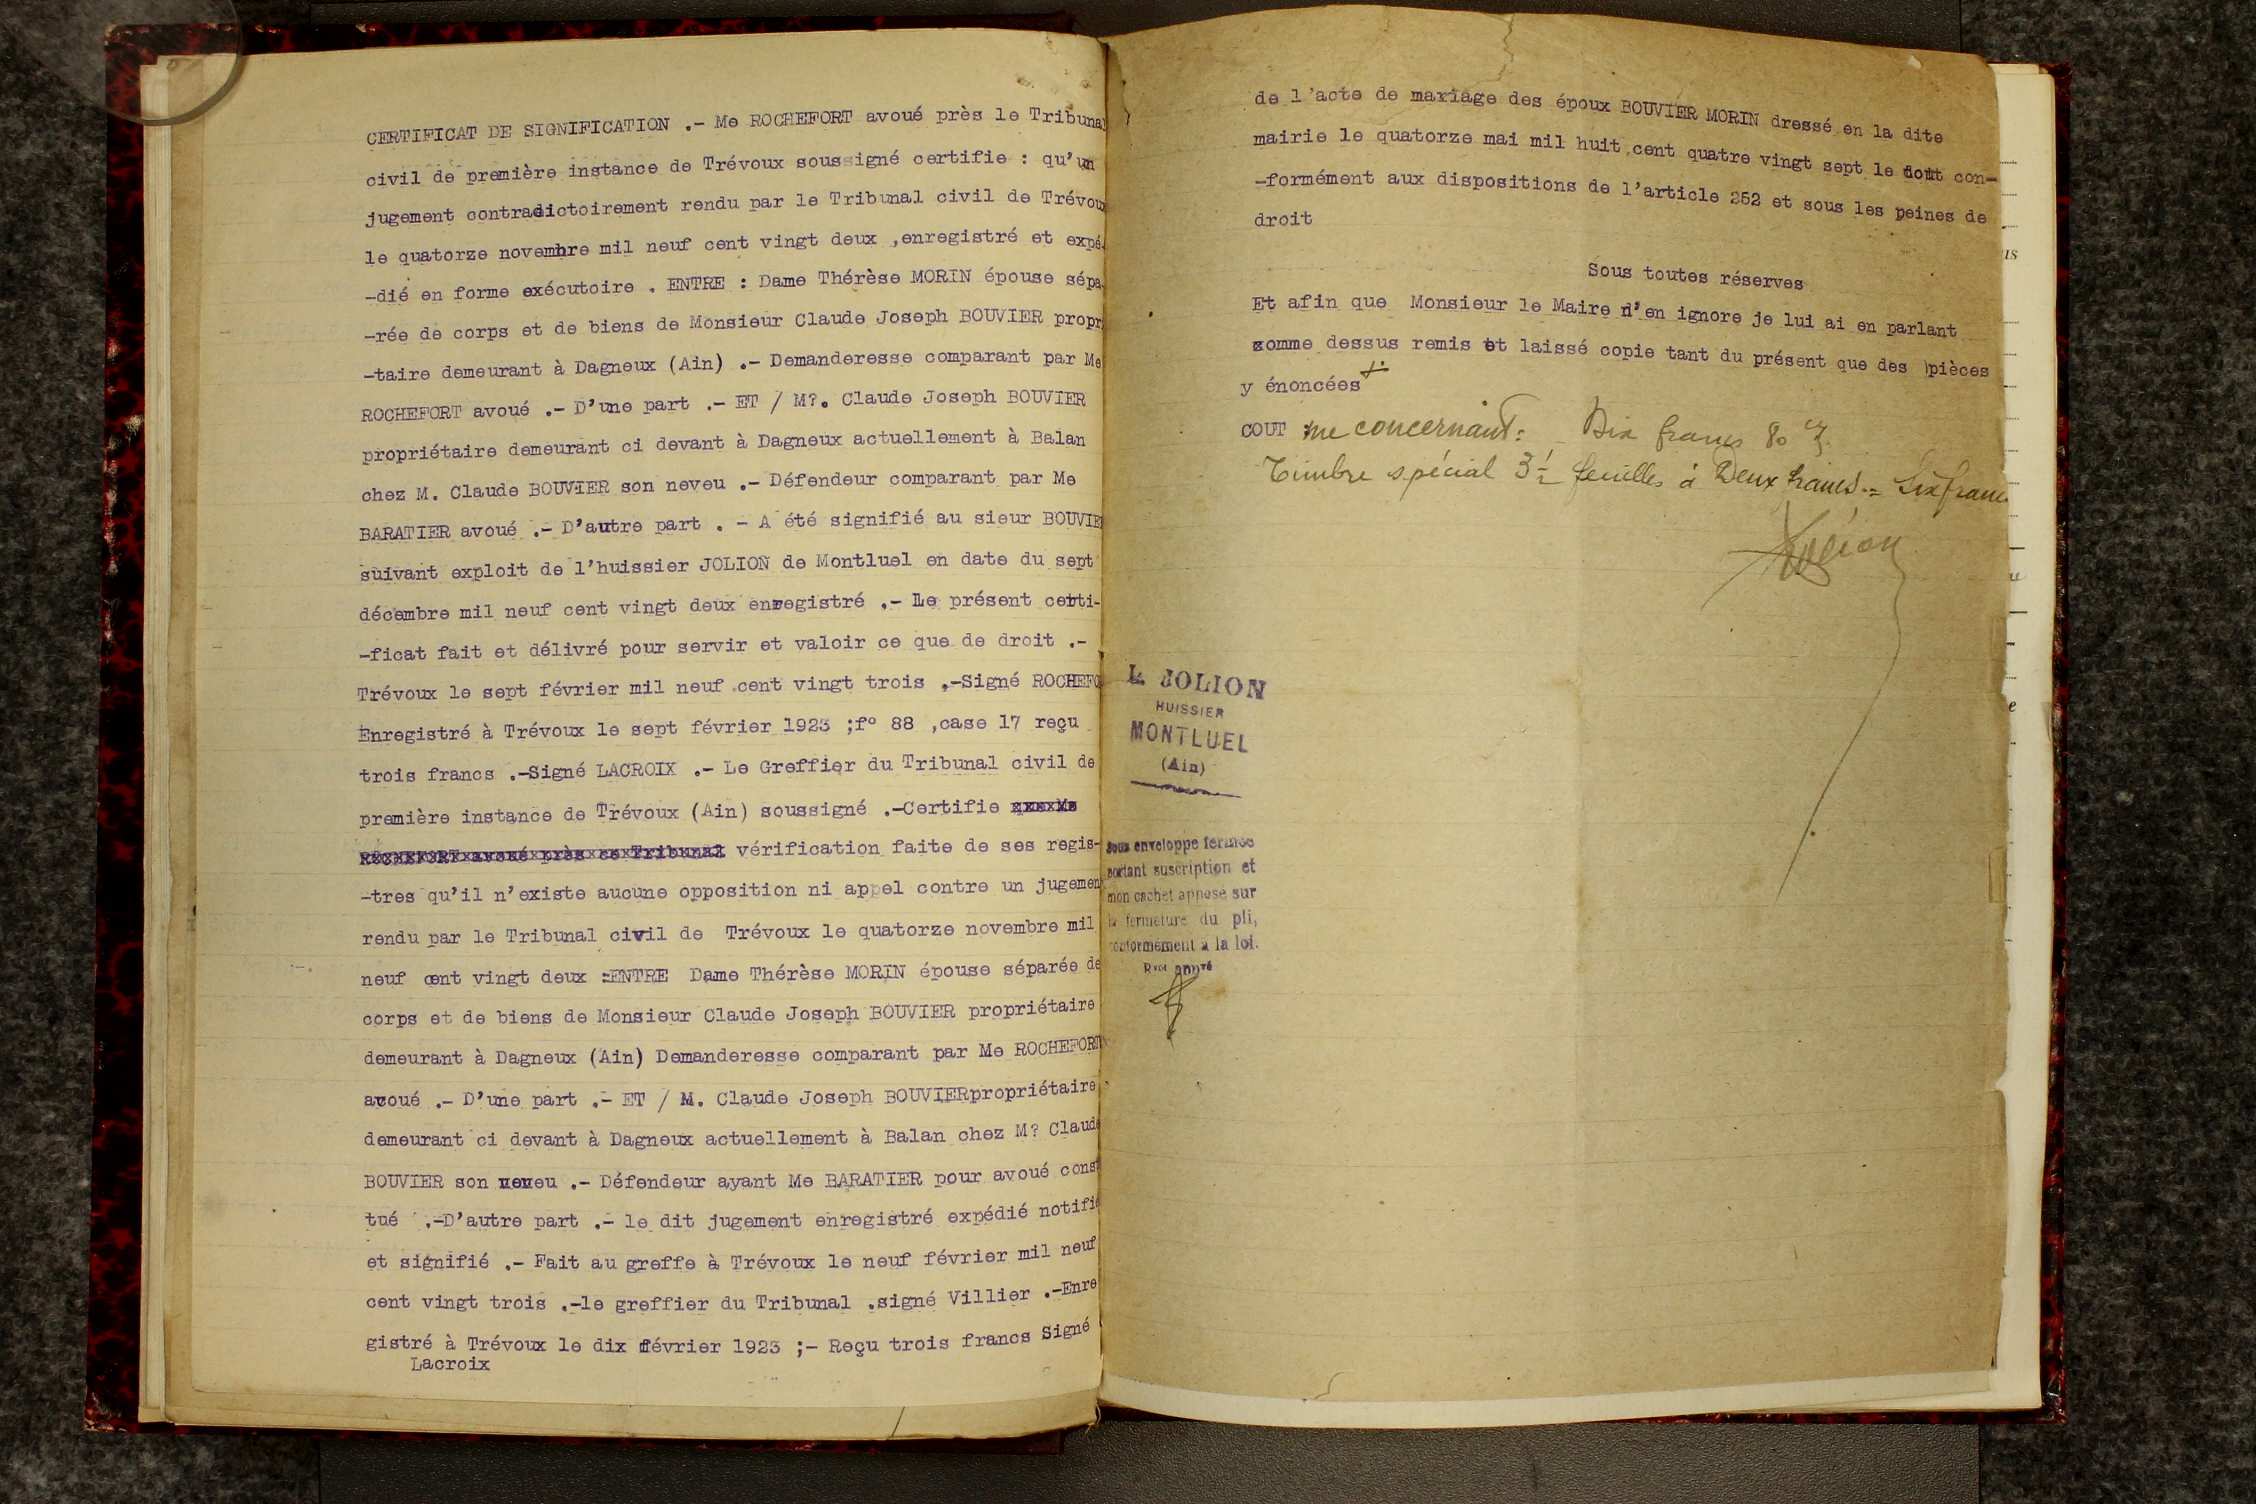 CERTIFICAT DE SIGNIFICATION .- Me ROCHEFORT avoué près le Tribunal
civil de première instance de Trévoux soussigné certifie : qu'un
jugement contradictoirement rendu par le Tribunal civil de Trévoux
le quatorze novembre mil neuf cent vingt deux ,enregistré et expé-
-dié en forme exécutoire . ENTRE : Dame Thérèse MORIN épouse sépa-
-rée de corps et de biens de Monsieur Claude Joseph BOUVIER propri
-taire demeurant à Dagneux (Ain) .- Demanderesse comparant par Me
ROCHEFORT avoué .- D'une part .- ET / M?. Claude Joseph BOUVIER
propriétaire demeurant ci devant à Dagneux actuellement à Balan
chez M. Claude BOUVIER son neveu .- Défendeur comparant par Me
BARATIER avoué .- D'autre part . - A été signifié au sieur BOUVIER
suivant exploit de l'huissier JOLION de Montluel en date du sept
décembre mil neuf cent vingt deux enregistré .- Le présent certi-
-ficat fait et délivré pour servir et valoir ce que de droit .-
Trévoux le sept février mil neuf cent vingt trois .-Signé ROCHEFO
Enregistré à Trévoux le sept février 1923 ;f° 88 ,case 17 reçu
trois francs .-Signé LACROIX .- Le Greffier du Tribunal civil de
première instance de Trévoux (Ain) soussigné .-Certifie que Me
ROCHEFORT avoué près ce Tribunal vérification faite de ses regis-
-tres qu'il n'existe aucune opposition ni appel contre un jugement
rendu par le Tribunal civil de Trévoux le quatorze novembre mil
neuf cent vingt deux :ENTRE Dame Thérèse MORIN épouse séparée de
corps et de biens de Monsieur Claude Joseph BOUVIER propriétaire
demeurant à Dagneux (Ain) Demanderesse comparant par Me ROCHEFORT
avoué .- D'une part .- ET / M. Claude Joseph BOUVIERpropriétaire
demeurant ci devant à Dagneux actuellement à Balan chez M? Claude
BOUVIER son neveu .- Défendeur ayant Me BARATIER pour avoué const
tué .-D'autre part .- le dit jugement enregistré expédié notifié
et signifié .- Fait au greffe à Trévoux le neuf février mil neuf
cent vingt trois .-le greffier du Tribunal .signé Villier .-Enre
gistré à Trévoux le dix février 1923 ;- Reçu trois francs Signé
Lacroix
de l'acte de mariage des époux BOUVIER MORIN dressé en la dite
mairie le quatorze mai mil huit cent quatre vingt sept le tout con-
-formément aux dispositions de l'article 252 et sous les peines de
droit
Sous toutes réserves
Et afin que Monsieur le Maire n'en ignore je lui ai en parlant
comme dessus remis et laissé copie tant du présent que des pièces
y énoncées +
COUT me concernant: Dix francs 80 c
Timbre spécial 3 feuilles à Deux francs = Six francs
Jolion
L. JOLION
HUISSIER
MONTLUEL
(Ain)
sous enveloppe fermée
portant suscription et
mon cachet apposé sur
la fermeture du pli,
conformément à la loi.
Rvoi appvé